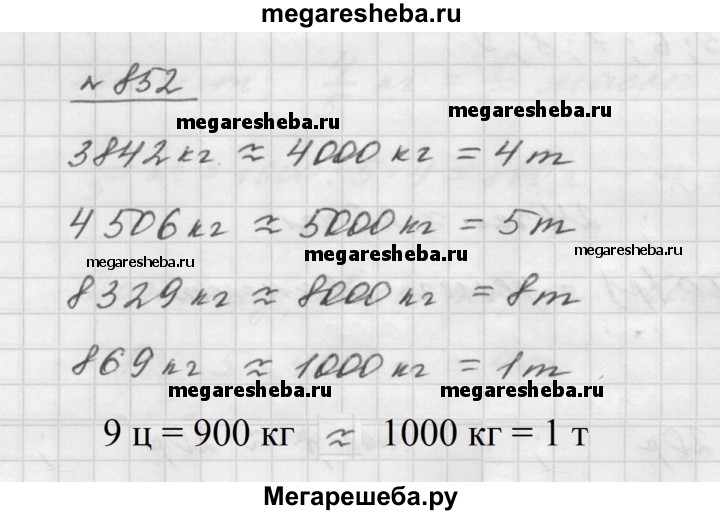 megaresheba.ru
№ 852
megaresheba.ru
3842 кг ≈ 4000 кг = 4 т
4 506 кг ≈ 5000 кг = 5 т
megaresheba.ru megaresheba.ru megaresheba.ru
8329 кг ≈ 8000 кг = 8 т
869 кг ≈ 1000 кг = 1 т
megaresheba.ru megaresheba.ru
9 ц = 900 кг ≈ 1000 кг = 1 т
Мегарешеба.ру